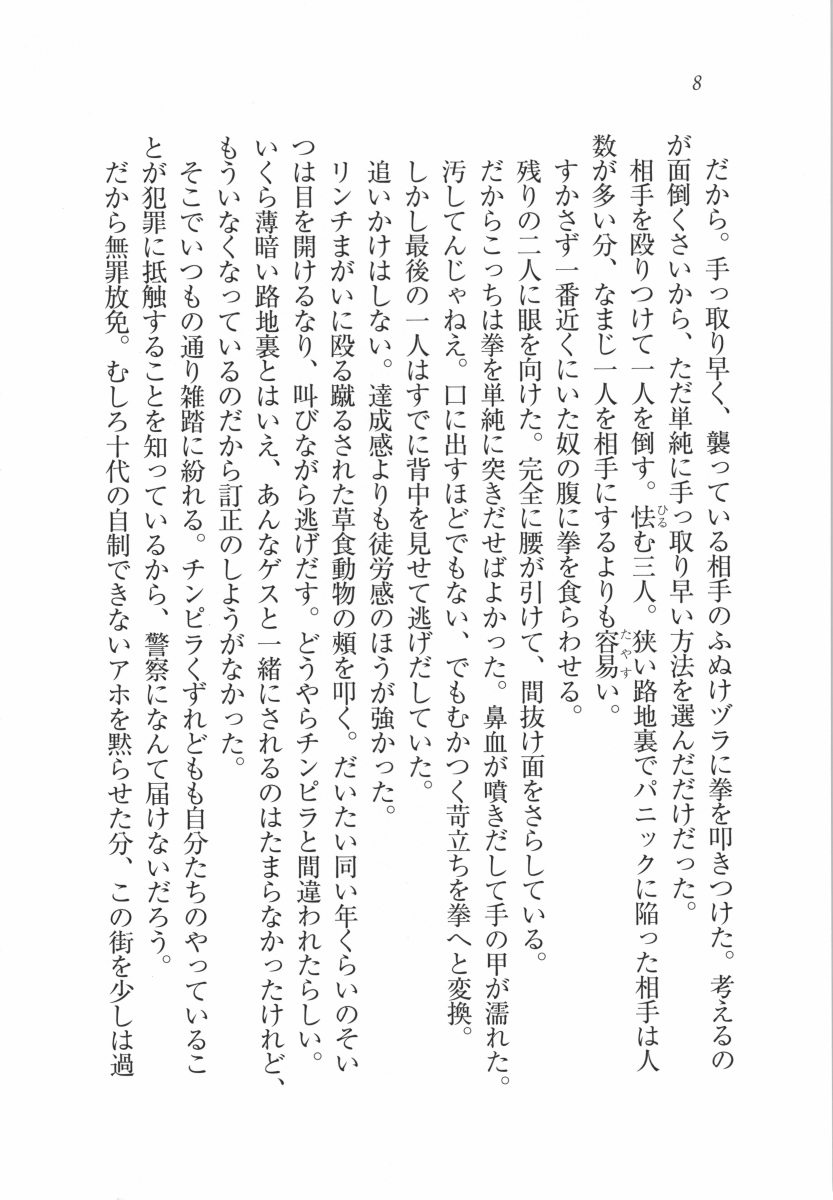 8
だから。手っ取り早く、襲っている相手のふぬけヅラに拳を叩きつけた。考えるの
が面倒くさいから、ただ単純に手っ取り早い方法を選んだだけだった。
相手を殴りつけて一人を倒す。怯む三人。狭い路地裏でパニックに陥った相手は人
ひる
数が多い分、なまじ一人を相手にするよりも容易い。
たやす
すかさず一番近くにいた奴の腹に拳を食らわせる。
残りの二人に眼を向けた。完全に腰が引けて、間抜け面をさらしている。
だからこっちは拳を単純に突きだせばよかった。鼻血が噴きだして手の甲が濡れた。
汚してんじゃねえ。口に出すほどでもない、でもむかつく苛立ちを拳へと変換。
しかし最後の一人はすでに背中を見せて逃げだしていた。
追いかけはしない。達成感よりも徒労感のほうが強かった。
リンチまがいに殴る蹴るされた草食動物の頰を叩く。だいたい同い年くらいのそい
つは目を開けるなり、叫びながら逃げだす。どうやらチンピラと間違われたらしい。
いくら薄暗い路地裏とはいえ、あんなゲスと一緒にされるのはたまらなかったけれど、
もういなくなっているのだから訂正のしようがなかった。
そこでいつもの通り雑踏に紛れる。チンピラくずれどもも自分たちのやっているこ
とが犯罪に抵触することを知っているから、警察になんて届けないだろう。
だから無罪放免。むしろ十代の自制できないアホを黙らせた分、この街を少しは過